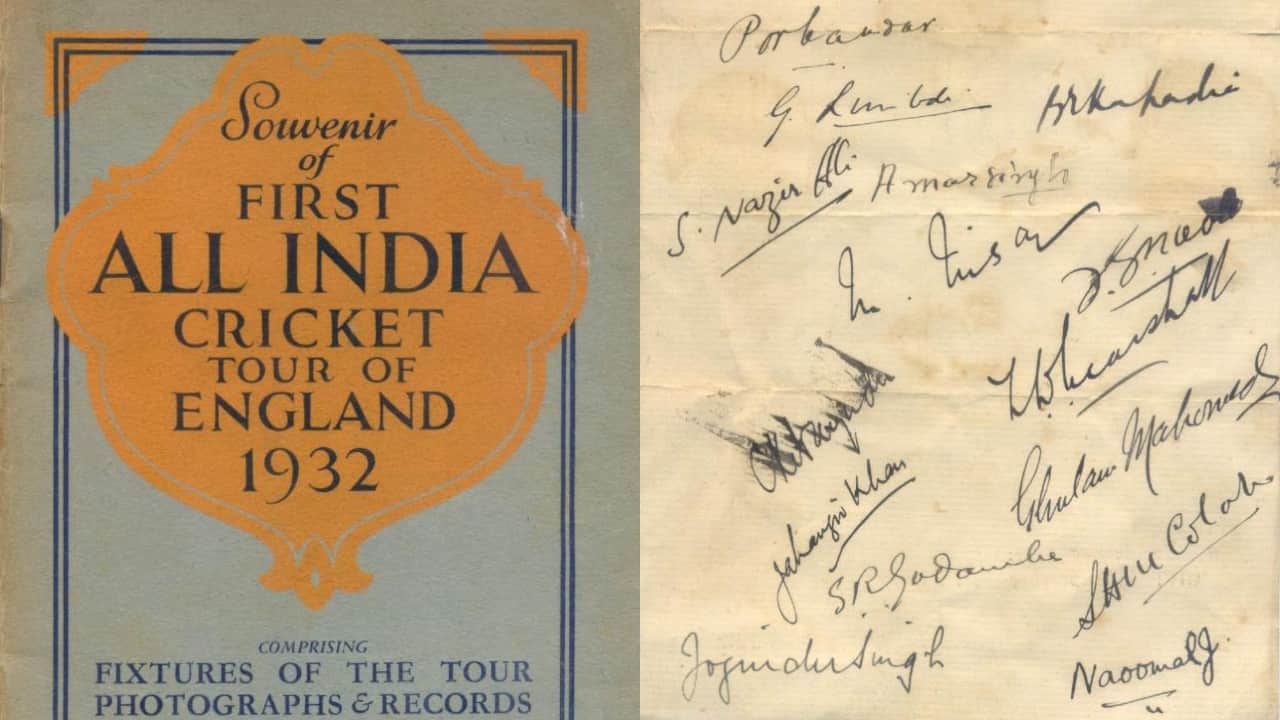 Souvenir
of
FIRST
ALL INDIA
CRICKET
TOUR OF
ENGLAND
1932
COMPRISING
FIXTURES OF THE TOUR
PHOTOGRAPHS & RECORDS
Porbandar
G. Limbdi
S. Nazir Ali
Amarsingh
M. Nisar
Jahangir Khan
Ghulam Mahomed
S.R. Godambe
S.H.M. Colah
Joginder Singh
Naoomal J.